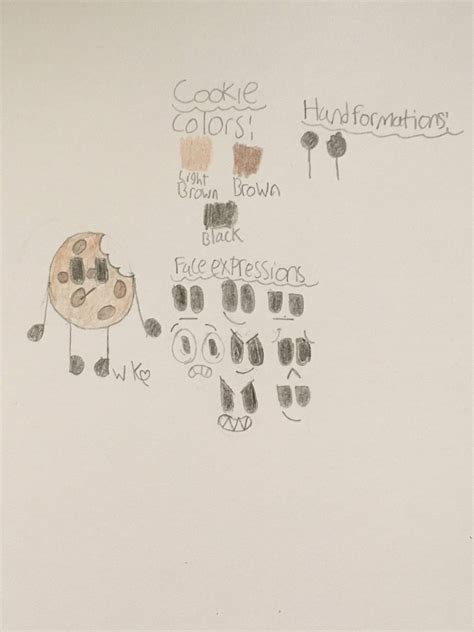 Cookie
Colors:
Hand formations:
Light
Brown
Brown
Black
Face expressions
WK